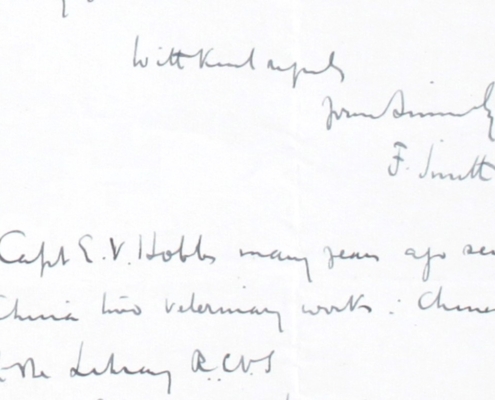 With kind regards
Yours Sincerely
F. Smith
Capt E. V. Hobbs many years ago
China two veterinary works :
the Library R.C.V.S